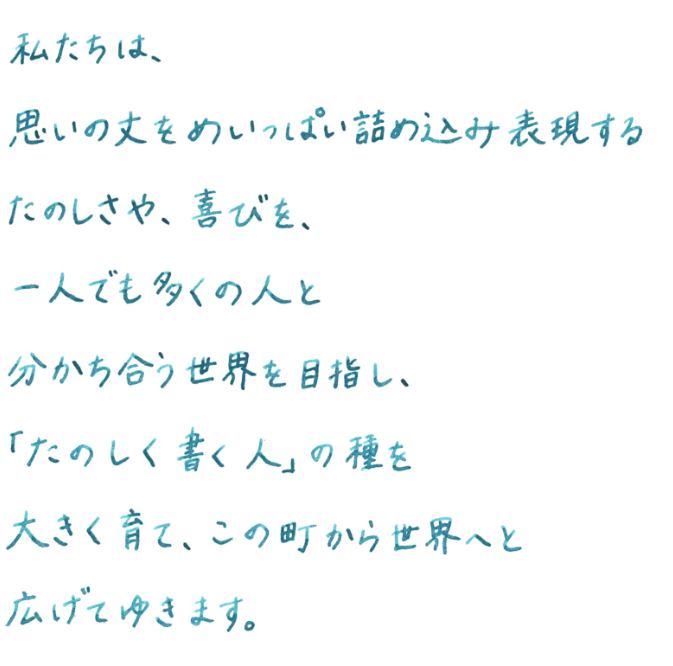 私たちは、
思いの丈をめいっぱい詰め込み表現する
たのしさや、喜びを、
一人でも多くの人と
分かち合う世界を目指し、
「たのしく書く人」の種を
大きく育て、この町から世界へと
広げてゆきます。